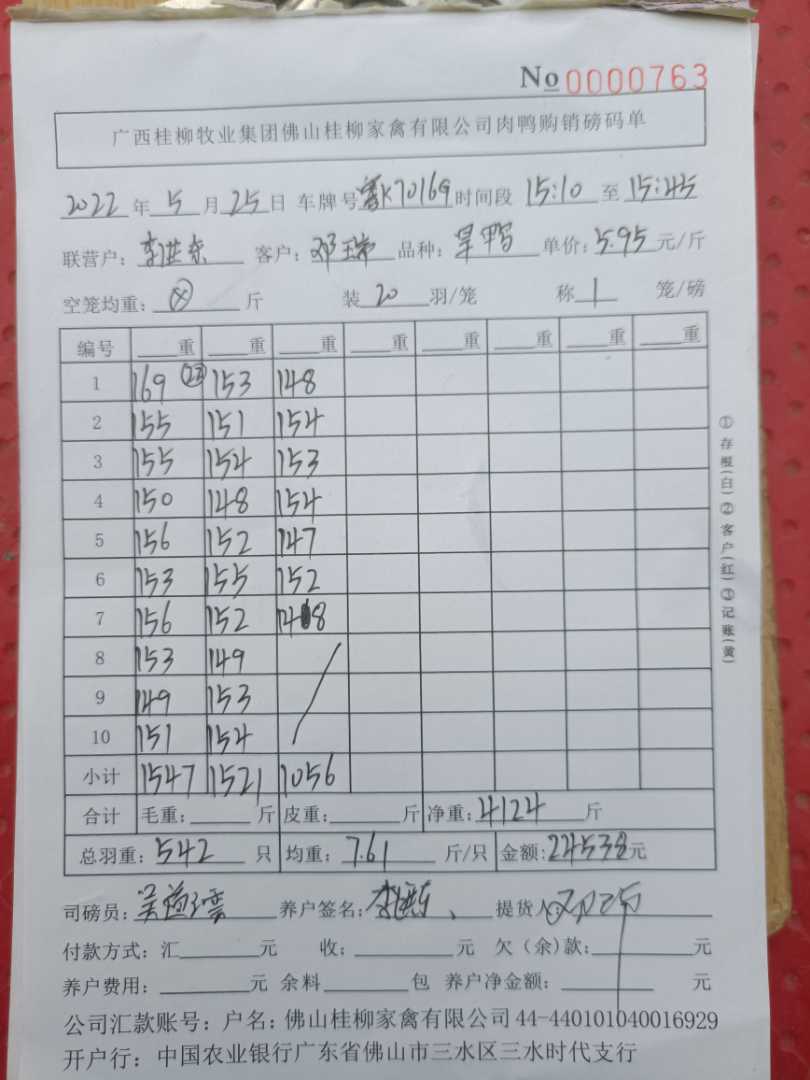 No 0000763
广西桂柳牧业集团佛山桂柳家禽有限公司肉鸭购销磅码单
2022年5月25日 车牌号K70169时间段 15:10 至 15:45
联营户: 客户:邓 品种: 旱鸭 单价: 5.95元/斤
空笼均重: ⊗ 斤 装 20 羽/笼 称 1 笼/磅
编号 重 重 重 重 重 重 重 重
1 169 (22) 153 148
2 155 151 154
3 155 154 153
4 150 148 154
5 156 152 147
6 153 155 152
7 156 152 148
8 153 149
9 149 153
10 151 154
小计 1547 1521 1056
合计 毛重: 斤 皮重: 斤 净重: 4124 斤
总羽重: 542 只 均重: 7.61 斤/只 金额: 24538元
司磅员: 养户签名: 提货人:
付款方式: 汇 元 收: 元 欠(余)款: 元
养户费用: 元 余料 包 养户净金额: 元
公司汇款账号: 户名: 佛山桂柳家禽有限公司 44-440101040016929
开户行: 中国农业银行广东省佛山市三水区三水时代支行
①存根(白)②客户(红)③记账(黄)